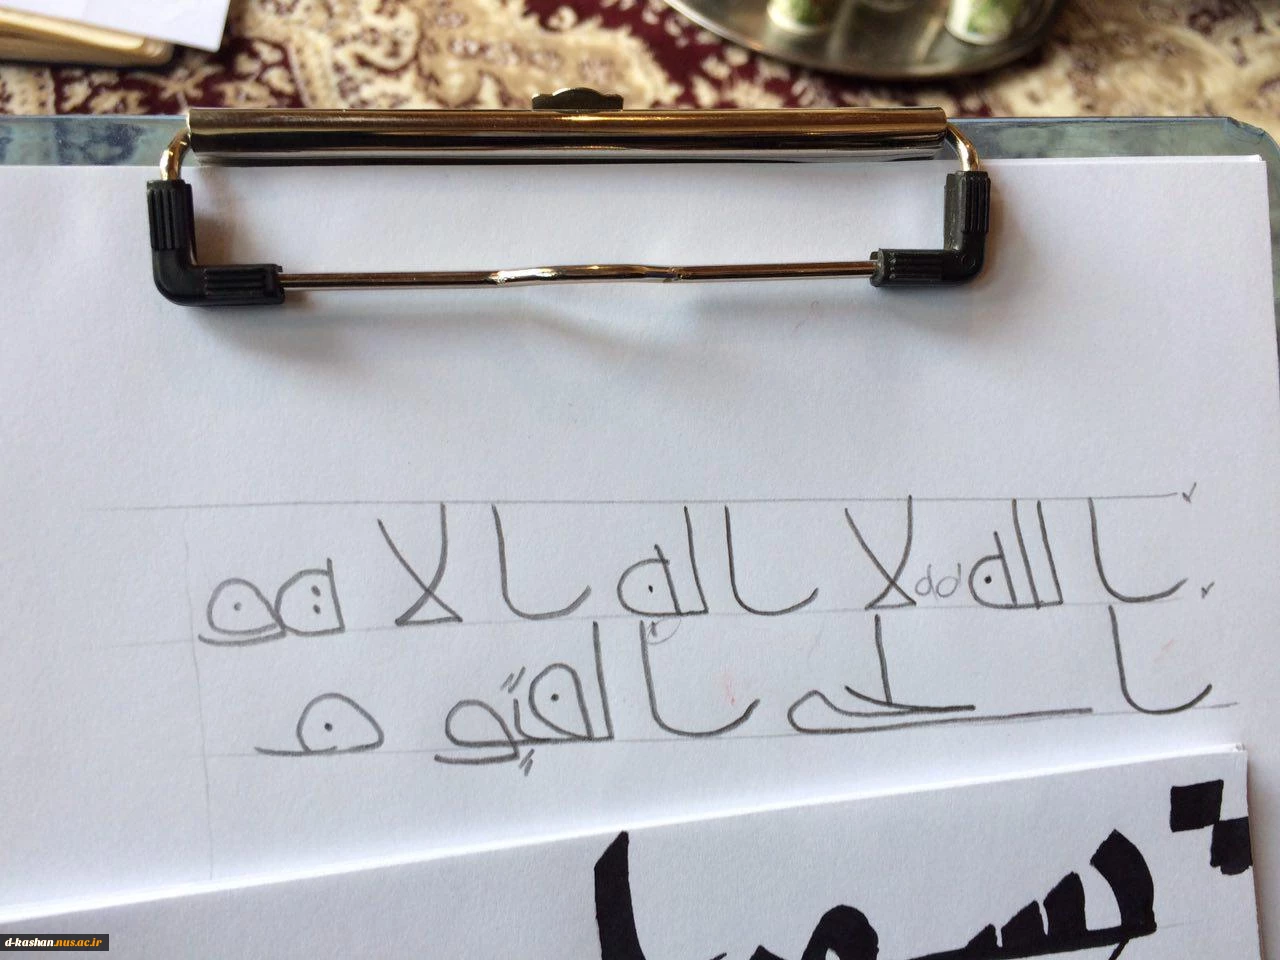 الله لا اله الا هو
الحی القیوم
بسم ا
d-kashan.nus.ac.ir